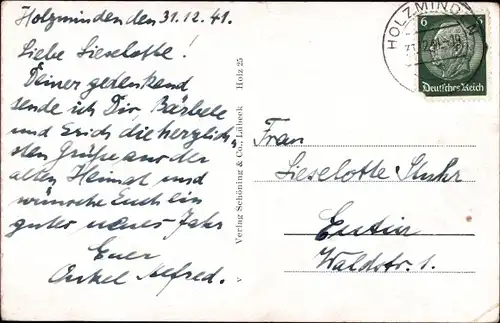 Holzminden den 31.12.41.
Liebe Lieselotte!
Deiner gedenkend
sende ich Dir, Bärbele
und Erich die herzlich-
sten Grüße aus der
alten Heimat und
wünsche Euch ein
gutes neues Jahr
Euer
Onkel Alfred.
Verlag Schöning & Co., Lübeck Holz 25
v
HOLZMINDEN
6 6
Deutsches Reich
Frau
Lieselotte Stuhr
Eutin
Waldstr. 1.